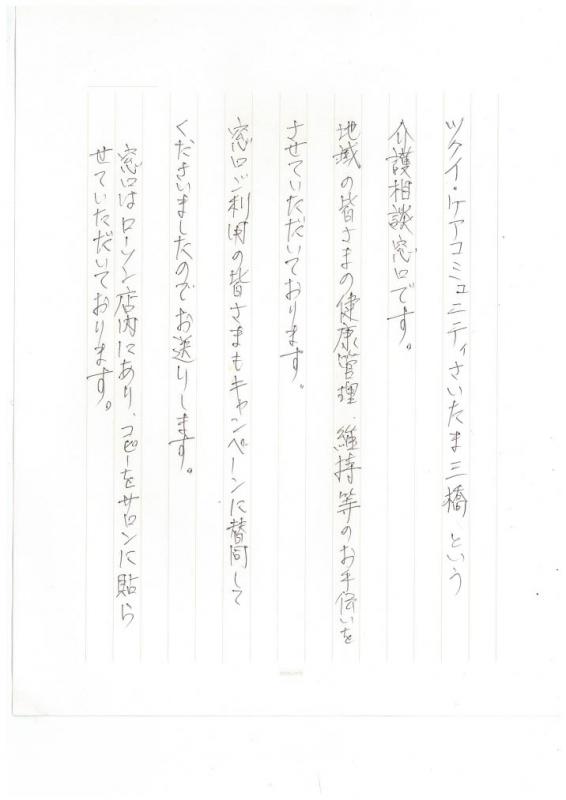 ツクイ・ケアコミュニティさいたま三橋という
介護相談窓口です。
地域の皆さまの健康管理、維持等のお手伝いを
させていただいております。
窓口ご利用の皆さまもキャンペーンに賛同して
くださいましたのでお送りします。
窓口はローソン店内にあり、コピーをサロンに貼ら
せていただいております。